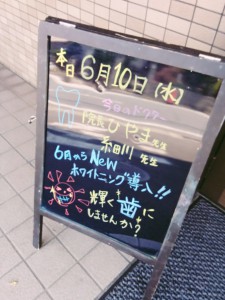 本日6月10日(水)
今日のドクター
院長ひやま先生
糸田川先生
6月からNew
ホワイトニング導入!!
輝く歯に
しませんか?